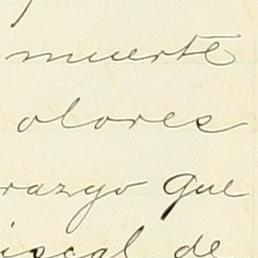 muerte
olores
razgo que
iscal de